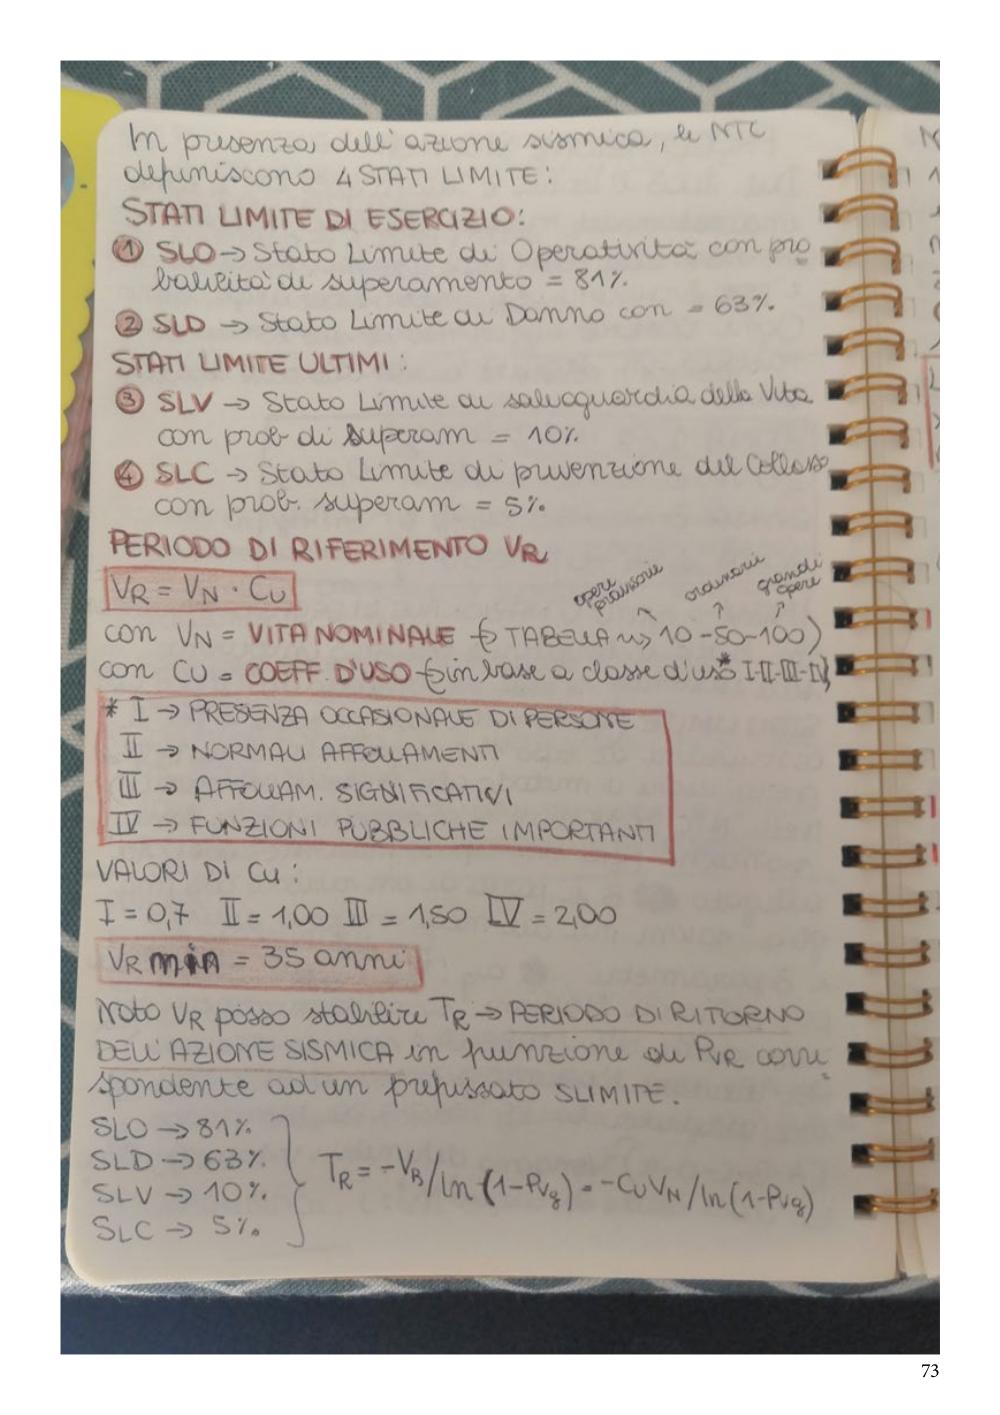 In presenza dell'azione sismica, le NTC
definiscono 4 STATI LIMITE:
STATI LIMITE DI ESERCIZIO:
① SLO → Stato Limite di Operatività con pro
babilità di superamento = 81%.
② SLD → Stato Limite di Danno con = 63%.
STATI LIMITE ULTIMI:
③ SLV → Stato Limite di salvaguardia della Vita
con prob di superam = 10%
④ SLC → Stato Limite di prevenzione del Collasso
con prob. superam = 5%
PERIODO DI RIFERIMENTO VR
VR = VN · CU
opere provvisorie ordinarie grandi opere
con VN = VITA NOMINALE (→ TABELLA ~> 10-50-100)
con CU = COEFF. D'USO (→ in base a classe d'uso* I-II-III-IV)
* I → PRESENZA OCCASIONALE DI PERSONE
II → NORMALI AFFOLLAMENTI
III → AFFOLLAM. SIGNIFICATIVI
IV → FUNZIONI PUBBLICHE IMPORTANTI
VALORI DI CU:
I = 0,7 II = 1,00 III = 1,50 IV = 2,00
VR min = 35 anni
Noto VR posso stabilire TR → PERIODO DI RITORNO
DELL'AZIONE SISMICA in funzione di PVR corri
spondente ad un prefissato SLIMITE.
SLO → 81%
SLD → 63%.
SLV → 10%.
SLC → 5%.
TR = -VR/ln (1-PVR) = -CUVN/ln(1-PVR)
73